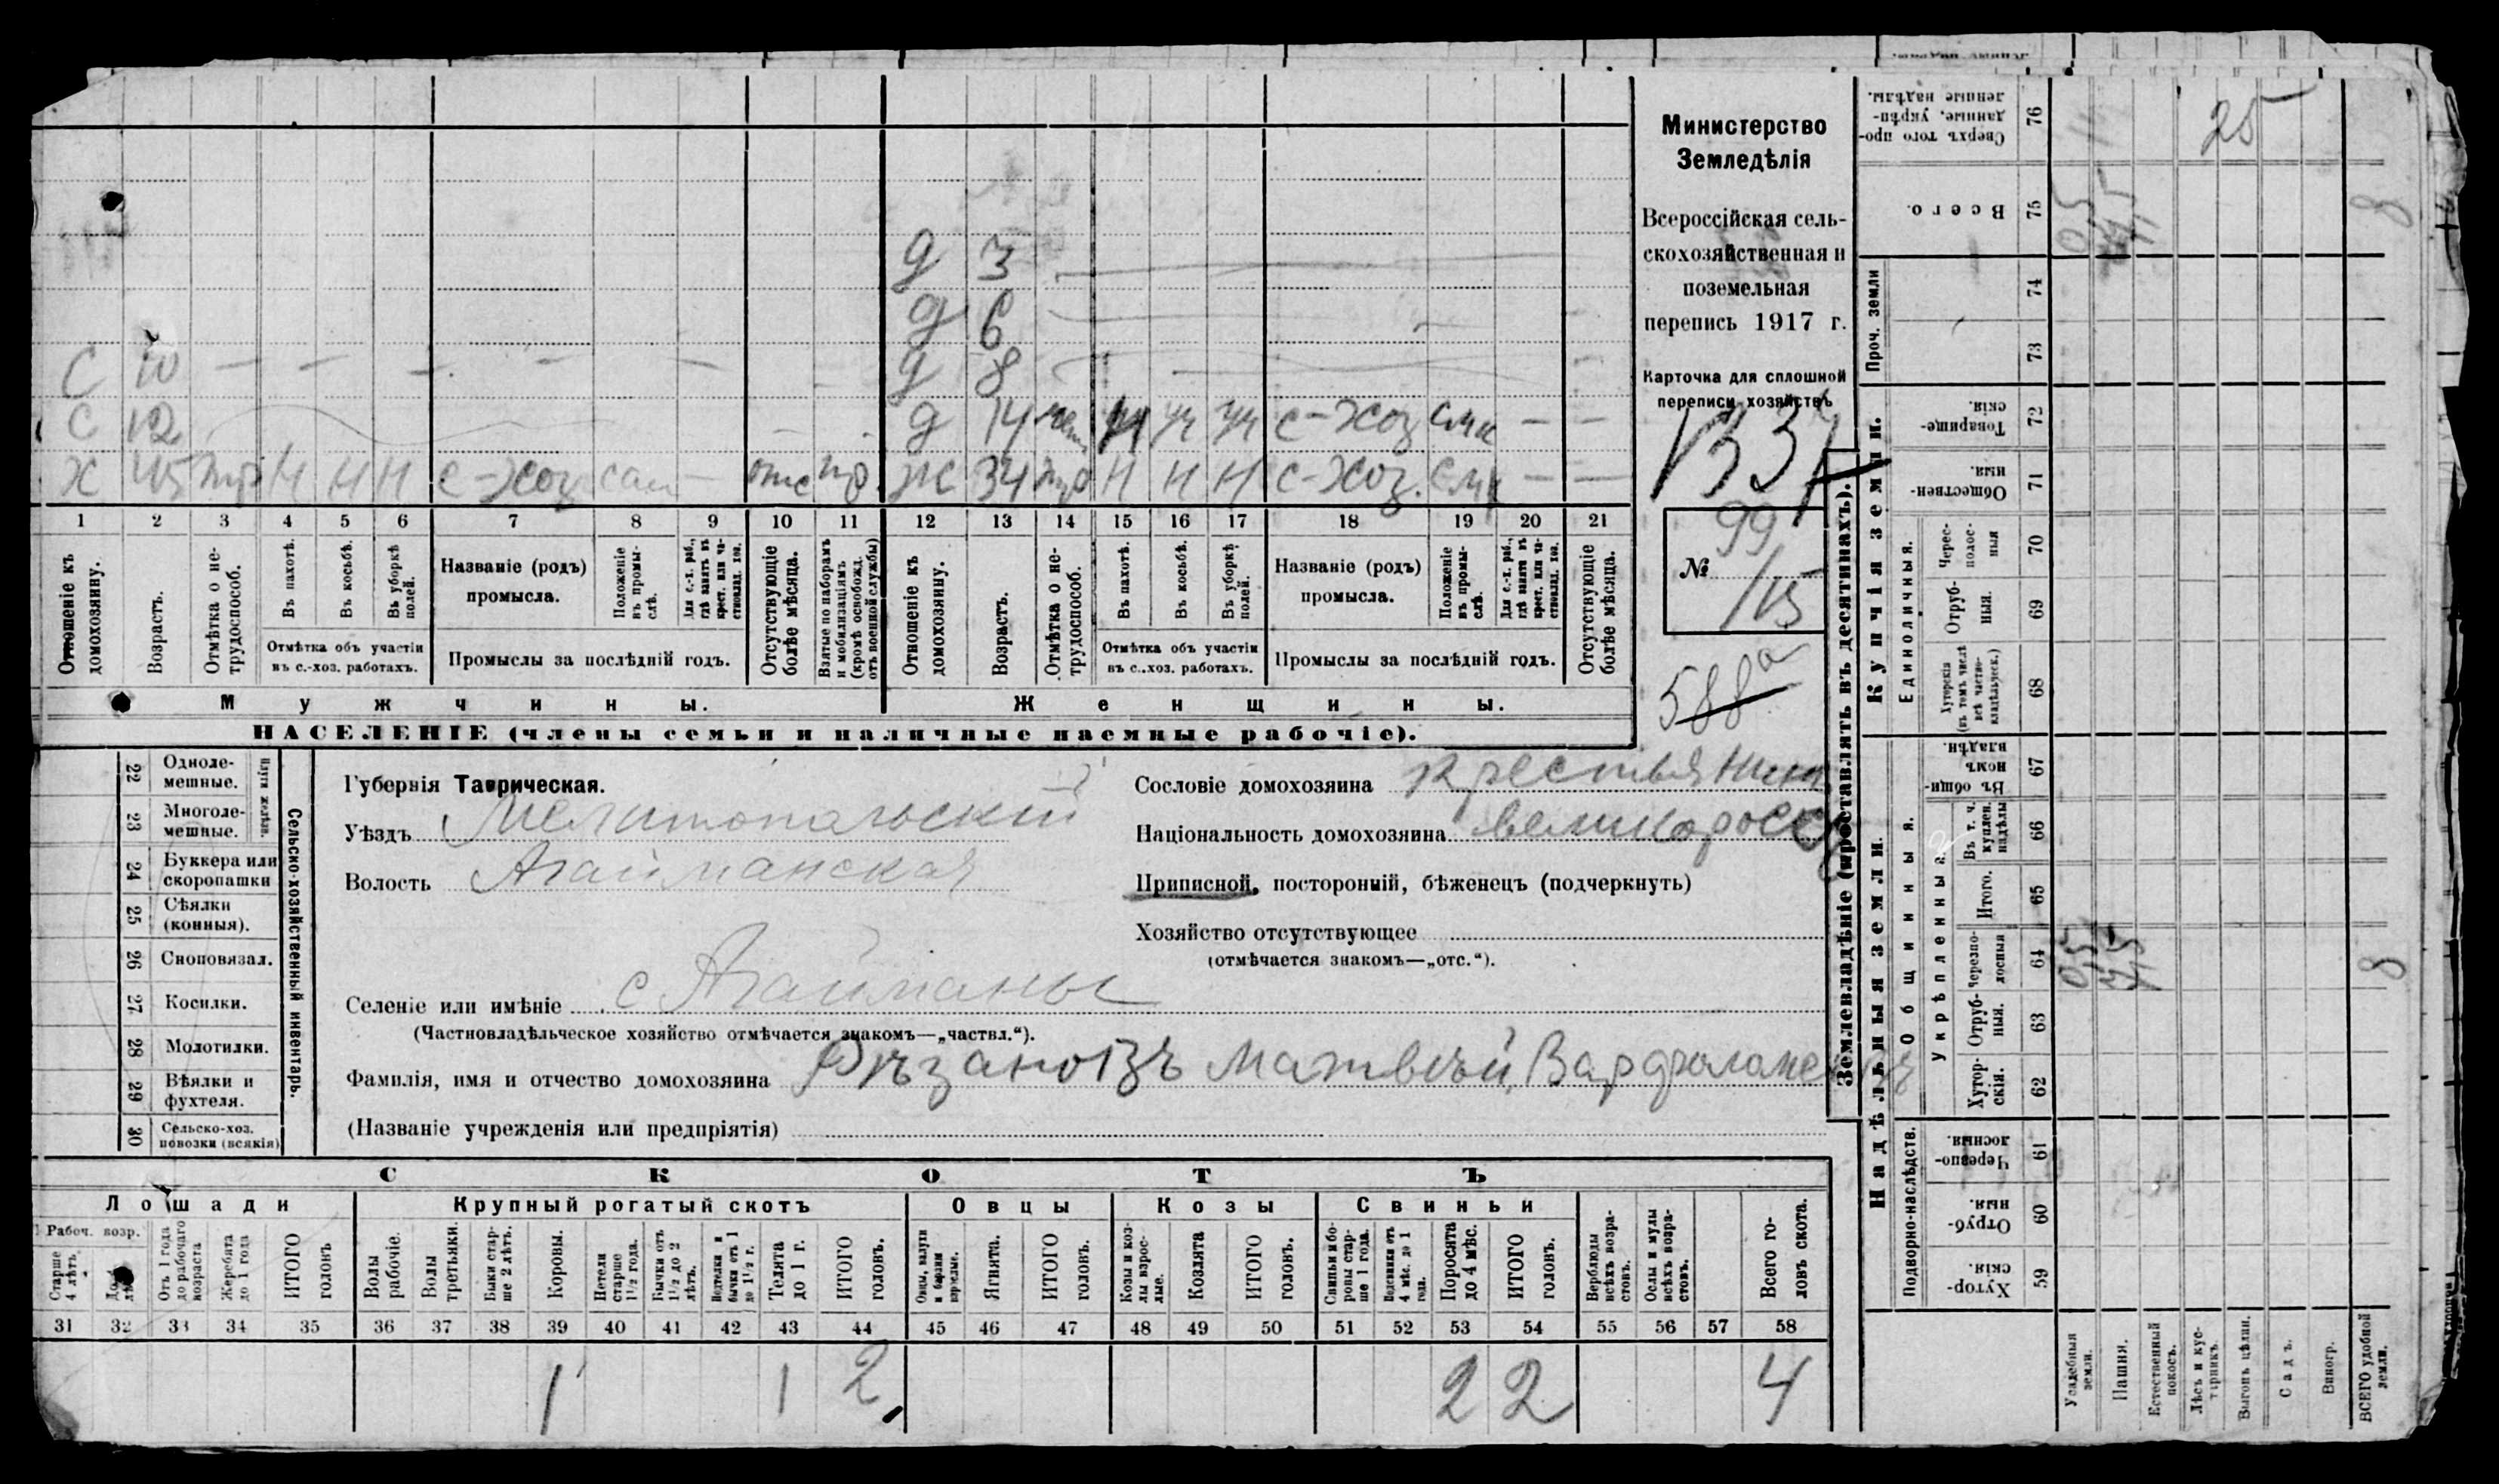 Министерство
Земледѣлія
Всероссійская сель-
скохозяйственная и
поземельная
перепись 1917 г.
Карточка для сплошной
переписи хозяйствъ
№ 99
/15
588а
д 3
д 6
С 10 — — — — — д 8
С 12 — — д 14 уч уч с-хоз — —
Х 45 Н Н Н с-хоз — отс ж 34 Н Н Н с-хоз. — —
1 2 3 4 5 6 7 8 9 10 11 12 13 14 15 16 17 18 19 20 21
Отношеніе къ домохозяину.
Возрастъ.
Отмѣтка о не-трудоспособ.
Въ пахотѣ.
Въ косьбѣ.
Въ уборкѣ полей.
Отмѣтка объ участіи въ с.-хоз. работахъ.
Названіе (родъ) промысла.
Положеніе въ промы-слѣ.
Для с.-х. раб., гдѣ занятъ въ крест. или ча-стновлад. хоз.
Промыслы за послѣдній годъ.
Отсутствующіе болѣе мѣсяца.
Взятые по наборамъ и мобилизаціямъ (кромѣ освобожд. отъ военной службы)
Отношеніе къ домохозяину.
Возрастъ.
Отмѣтка о не-трудоспособ.
Въ пахотѣ.
Въ косьбѣ.
Въ уборкѣ полей.
Отмѣтка объ участіи въ с.-хоз. работахъ.
Названіе (родъ) промысла.
Положеніе въ промы-слѣ.
Для с.-х. раб., гдѣ занята въ крест. или ча-стновлад. хоз.
Промыслы за послѣдній годъ.
Отсутствующіе болѣе мѣсяца.
Мужчины. Женщины.
НАСЕЛЕНІЕ (члены семьи и наличные наемные рабочіе).
Сельско-хозяйственный инвентарь.
Плуги желѣзн.
22 Одноле-мешные.
23 Многоле-мешные.
24 Буккера или скоропашки
25 Сѣялки (конныя).
26 Сноповязал.
27 Косилки.
28 Молотилки.
29 Вѣялки и фухтеля.
30 Сельско-хоз. повозки (всякія)
Губернія Таврическая.
Уѣздъ Мелитопольскій
Волость Агайманская
Селеніе или имѣніе с Агайманы
(Частновладѣльческое хозяйство отмѣчается знакомъ—„частвл.“).
Фамилія, имя и отчество домохозяина Рѣзановъ Матвѣй Варфоломе
(Названіе учрежденія или предпріятія)
Сословіе домохозяина крестьянин
Національность домохозяина великоросс
Приписной, посторонній, бѣженецъ (подчеркнуть)
Хозяйство отсутствующее
(отмѣчается знакомъ—„отс.“).
СКОТЪ
Лошади Крупный рогатый скотъ Овцы Козы Свиньи
Рабоч. возр.
Старше 4 лѣтъ.
Отъ 1 года до рабочаго возраста
Жеребята до 1 года
ИТОГО головъ
Волы рабочіе.
Волы третьяки.
Быки стар-ше 2 лѣтъ.
Коровы.
Нетели старше 1½ года.
Бычки отъ 1½ до 2 лѣтъ.
Телята до 1 г.
ИТОГО головъ.
Ягнята.
ИТОГО головъ.
Козы и коз-лы взрос-лые.
Козлята
ИТОГО головъ.
Свиньи и бо-ровы стар-ше 1 года.
Подсвинки отъ 4 мѣс. до 1 года.
Поросята до 4 мѣс.
ИТОГО головъ.
Верблюды всѣхъ возра-стовъ.
Ослы и мулы всѣхъ возра-стовъ.
Всего го-ловъ скота.
31 32 33 34 35 36 37 38 39 40 41 42 43 44 45 46 47 48 49 50 51 52 53 54 55 56 57 58
1 1 2 2 2 4
Землевладѣніе (проставлять въ десятинахъ).
Надѣльныя земли. Купчія земли. Проч. земли
Подворно-наслѣдств.
Общинныя.
Укрѣпленныя.
Единоличныя.
59 Хутор-скія.
60 Отруб-ныя.
61 Черезпо-лосныя.
62 Хутор-скія.
63 Отруб-ныя.
64 Черезпо-лосныя 0,5 7,5 8
65 Итого.
66 Въ т. ч. куплен. надѣлы
67 Въ общин-номъ владѣн.
68 Хуторскія (въ томъ числѣ всѣ частно-владѣльческ.)
69 Отруб-ныя.
70 Черес-полос-ныя
71 Обществен-ныя.
72 Товарище-скія.
73
74
75 Всего. 0,5 7,5 8
76 Сверхъ того про-данные, укрѣп-ленные надѣлы. 25
Усадебныя земли.
Пашня.
Естественный покосъ.
Лѣсъ и кус-тарникъ.
Выгонъ цѣлин.
Садъ.
Виногр.
ВСЕГО удобной земли.